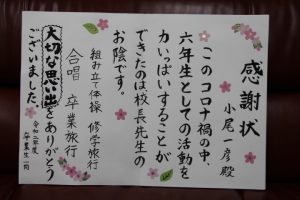 感謝状
小尾一彦殿
このコロナ禍の中、
六年生としての活動を
力いっぱいすることが
できたのは校長先生の
お陰です。
組み立て体操 修学旅行
合唱 卒業旅行
大切な思い出をありがとう
ございました。
令和二年度
卒業生一同